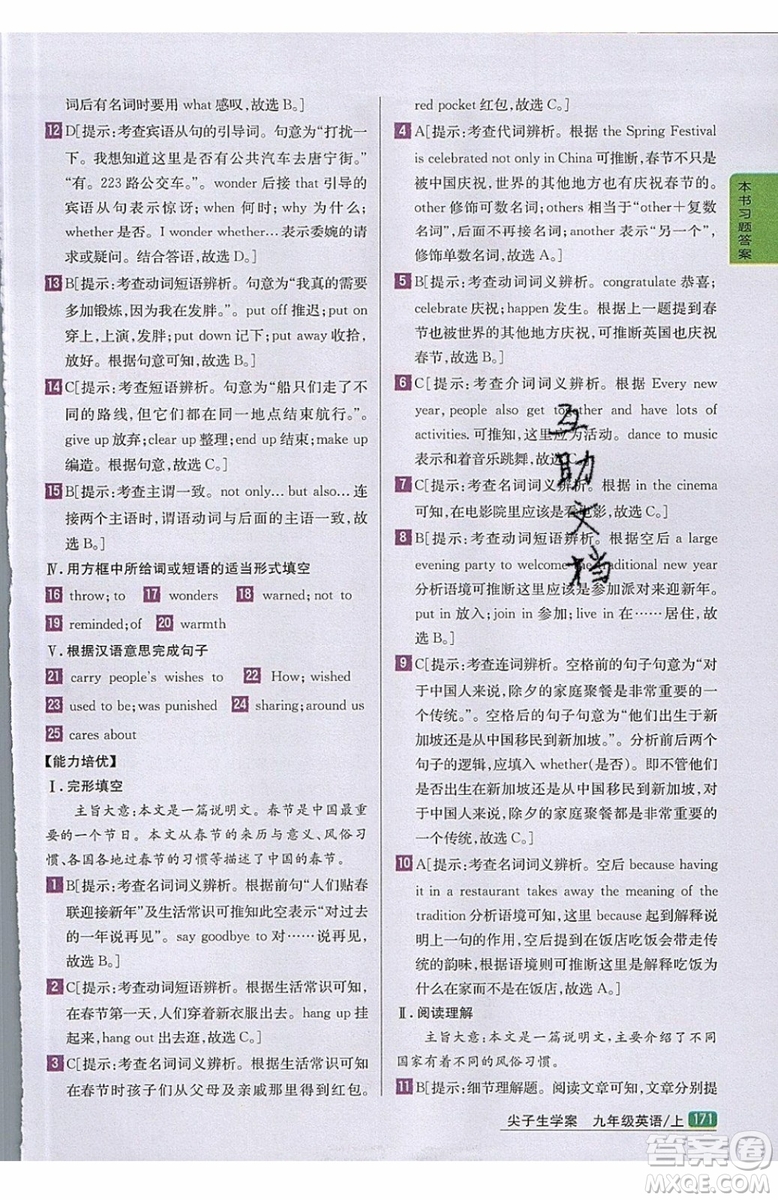 词后有名词时要用 what 感叹,故选 B。]
12 D[提示:考查宾语从句的引导词。句意为“打扰一
下。我想知道这里是否有公共汽车去唐宁街。”
“有。223 路公交车。”。wonder 后接 that 引导的
宾语从句表示惊讶;when 何时;why 为什么;
whether 是否。I wonder whether…表示委婉的请
求或疑问。结合答语,故选 D。]
13 B[提示:考查动词短语辨析。句意为“我真的需要
多加锻炼,因为我发胖了”。put off 推迟;put on
穿上,上演,发胖;put down 记下;put away 收拾,
放好。根据句意可知,故选 B。]
14 C[提示:考查短语辨析。句意为“船只们走了不
同的路线,但它们在同一地点结束航行。”。
give up 放弃;clear up 整理;end up 结束;make up
编造。根据句意可知,故选 C。]
15 B[提示:考查主谓一致。not only…but also…连
接两个主语时,谓语动词与后面的主语一致,故
选 B。]
Ⅳ. 用方框中所给词或短语的适当形式填空
16 throw; to 17 wonders 18 warned; to
19 reminded;of 20 warmth
Ⅴ.根据汉语意思完成句子
21 carry people's wishes to 22 How; wished
23 used to be;was punished 24 sharing;around us
25 cares about
【能力培优】
Ⅰ.完形填空
主旨大意:本文是一篇说明文。春节是中国最重
要的一个节日。本文从春节的来历与意义、风俗习
惯、各国各地过春节的习惯等描述了中国的春节。
1 B[提示:考查名词词义辨析。根据前句“人们贴春
联迎接新年”及生活常识可知此空表示“对过去
的一年说再见”。say goodbye to 对……说再见,
故选 B。]
2 C[提示:考查动词短语辨析。根据生活常识可知,
在春节第一天,人们穿着新衣服出去。hang up 挂
起来,hang out 出去逛,故选 C。]
3 C[提示:考查名词词义辨析。根据生活常识可知
在春节时孩子们从父母及亲戚那里得到红包。
red pocket 红包,故选 C。]
4 A[提示:考查代词辨析。根据 the Spring Festival
is celebrated not only in China 可推断,春节不只
被中国庆祝,世界的其他地方也有庆祝春节的。
other 修饰可数名词,构成“other+复数名词”
后不再接名词;another 表示“另一个”,
修饰单数名词,故选 A。]
5 B[提示:考查动词词义辨析。congratulate 恭喜;
celebrate 庆祝;happen 发生。根据上一题提到春
节也被世界的其他地方庆祝,可推断英国也庆祝
春节,故选 B。]
6 C[提示:考查介词词义辨析。根据 Every new
year, people also get together and have lots of
activities. 可推知,这里应为活动。dance to music
表示和着音乐跳舞,故选 C。]
7 C[提示:考查名词词义辨析。根据 in the cinema
可知,在电影院里应该是看电影,故选 C。]
8 B[提示:考查动词短语辨析。根据空后 a large
evening party to welcome the traditional new year
分析语境可推断这里应该是参加派对来迎新年。
put in 放入;join in 参加;live in ……居住,故
选 B。]
9 C[提示:考查连词辨析。空格前的句子句意为“对
于中国人来说,除夕的家庭聚餐是非常重要的一
个传统。”。空格后的句子句意为“他们出生于新
加坡还是从中国移民到新加坡”。分析前后两
个句子的逻辑,应填入 whether(是否)。是否出生
于新加坡还是从中国移民到新加坡,对于中国人
来说,除夕的家庭聚餐都是非常重要的
一个传统,故选 C。]
10 A[提示:考查名词词义辨析。空后 because having
it in a restaurant takes away the meaning of the
tradition 分析语境可知,这里 because 起到解释
说明上一句的作用,在饭店吃饭就失去了这个传
统的韵味,根据语境可知,这里是要解释吃饭为
什么在家而不是在饭店,故选 A。]
Ⅱ.阅读理解
主旨大意:本文是一篇说明文,主要介绍了不同
国家有着不同的风俗习惯。
11 B[提示:细节理解题。阅读文章可知,文章分别提
本书习题答案
互助文档
尖子生学案 九年级英语/上 171
答案圈
MXQE.COM